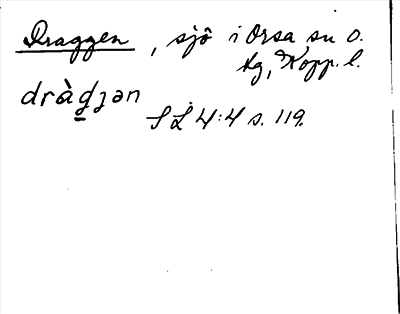 Draggen, sjö i Orsa sn o.
tg, Kopp. l.
dràd̲ȷən
S L 4:4 s. 119.